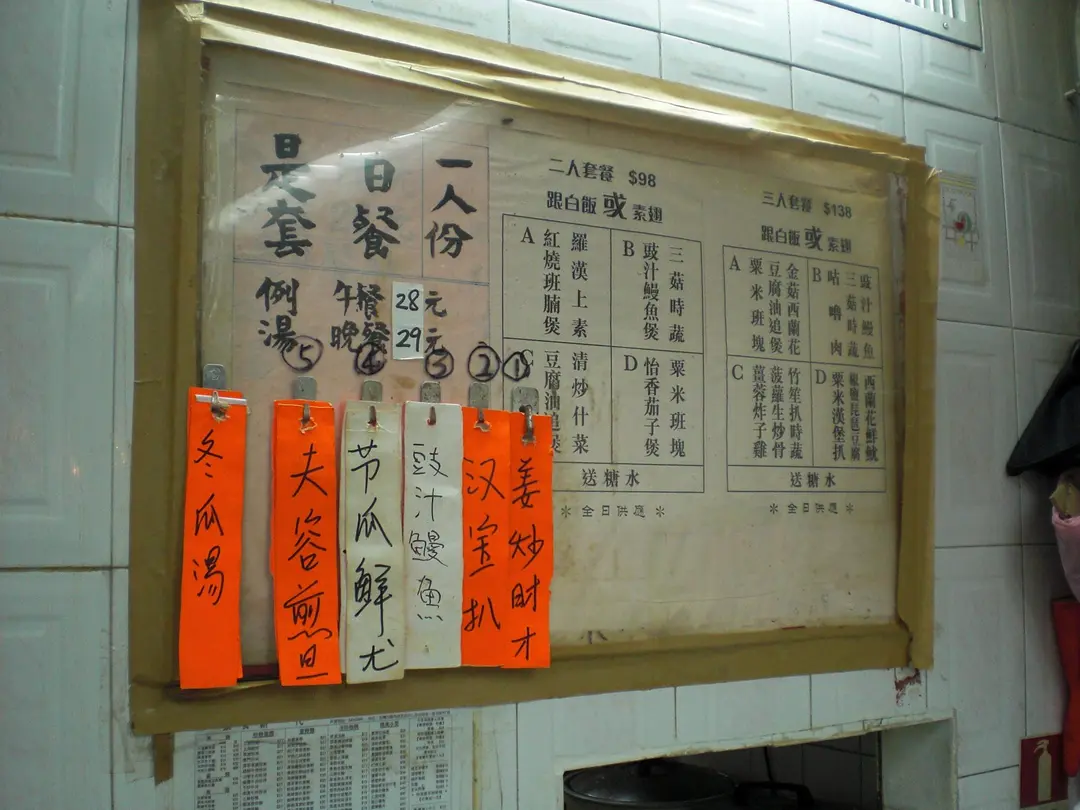 是日套餐
一人份
例湯
午餐 28元
晚餐 29元
⑤ ④ ③ ② ①
冬瓜湯
夫容煎旦
节瓜鮮尤
豉汁鰻魚
汉宝扒
姜炒时才
二人套餐 $98
跟白飯或素翅
A 紅燒班腩煲
羅漢上素
B 豉汁鰻魚煲
三菇時蔬
C 豆腐油追煲
清炒什菜
D 怡香茄子煲
粟米班塊
送糖水
* 全日供應 *
三人套餐 $138
跟白飯或素翅
A 粟米班塊
豆腐油追煲
金菇西蘭花
B 咕嚕肉
三菇時蔬
豉汁鰻魚
C 薑蓉炸子雞
菠蘿生炒骨
竹笙扒時蔬
D 粟米漢堡扒
椒鹽琵琶豆腐
西蘭花鮮魷
送糖水
* 全日供應 *